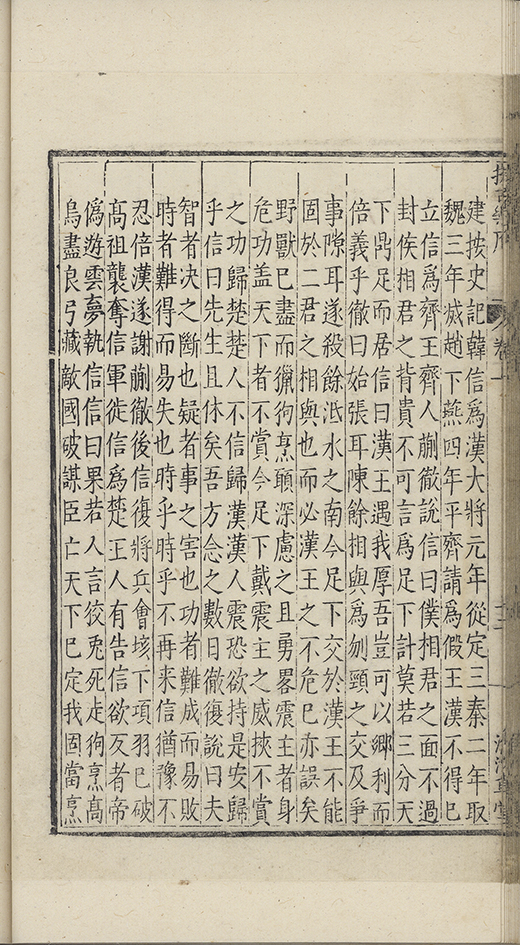 建按史記韓信爲漢大將元年從定三秦二年取
魏三年滅趙下燕四年平齊請爲假王漢不得已
立信爲齊王齊人蒯徹說信曰僕相君之面不過
封侯相君之背貴不可言爲足下計莫若三分天
下鼎足而居信曰漢王遇我厚吾豈可以鄉利而
倍義乎徹曰始張耳陳餘相與爲刎頸之交及爭
事隙耳遂殺餘泜水之南今足下交於漢王不能
固於二君之相與也而必漢王之不危已亦誤矣
野獸已盡而獵狗烹願深慮之且勇畧震主者身
危功盖天下者不賞今足下戴震主之威挾不賞
之功歸楚楚人不信歸漢漢人震恐欲持是安歸
乎信曰先生且休矣吾方念之數日徹復說曰夫
智者決之斷也疑者事之害也功者難成而易敗
時者難得而易失也時乎時乎不再来信猶豫不
忍倍漢遂謝蒯徹後信復將兵會垓下項羽已破
高祖襲奪信軍徙信爲楚王人有告信欲反者帝
僞遊雲夢執信信曰果若人言狡兎死走狗烹高
鳥盡良弓藏敵國破謀臣亡天下已定我固當烹
卷一